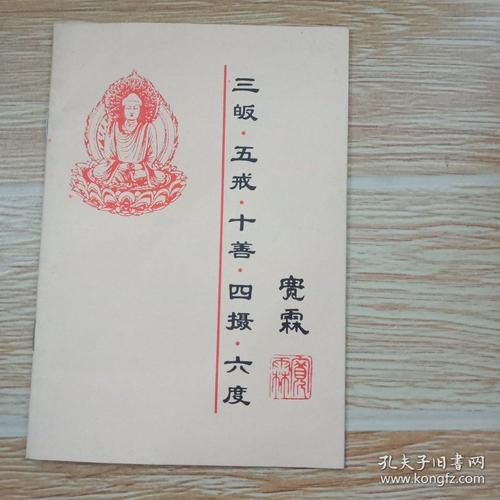 三皈·五戒·十善·四摄·六度
宽霖
宽霖
孔夫子旧书网
www.kongfz.com